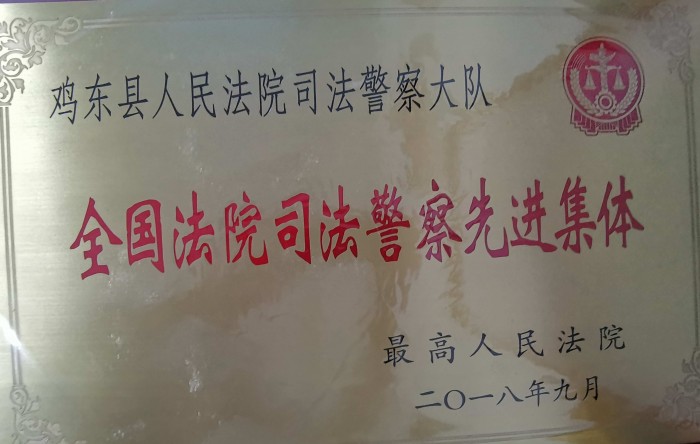 鸡东县人民法院司法警察大队
全国法院司法警察先进集体
最高人民法院
二〇一八年九月